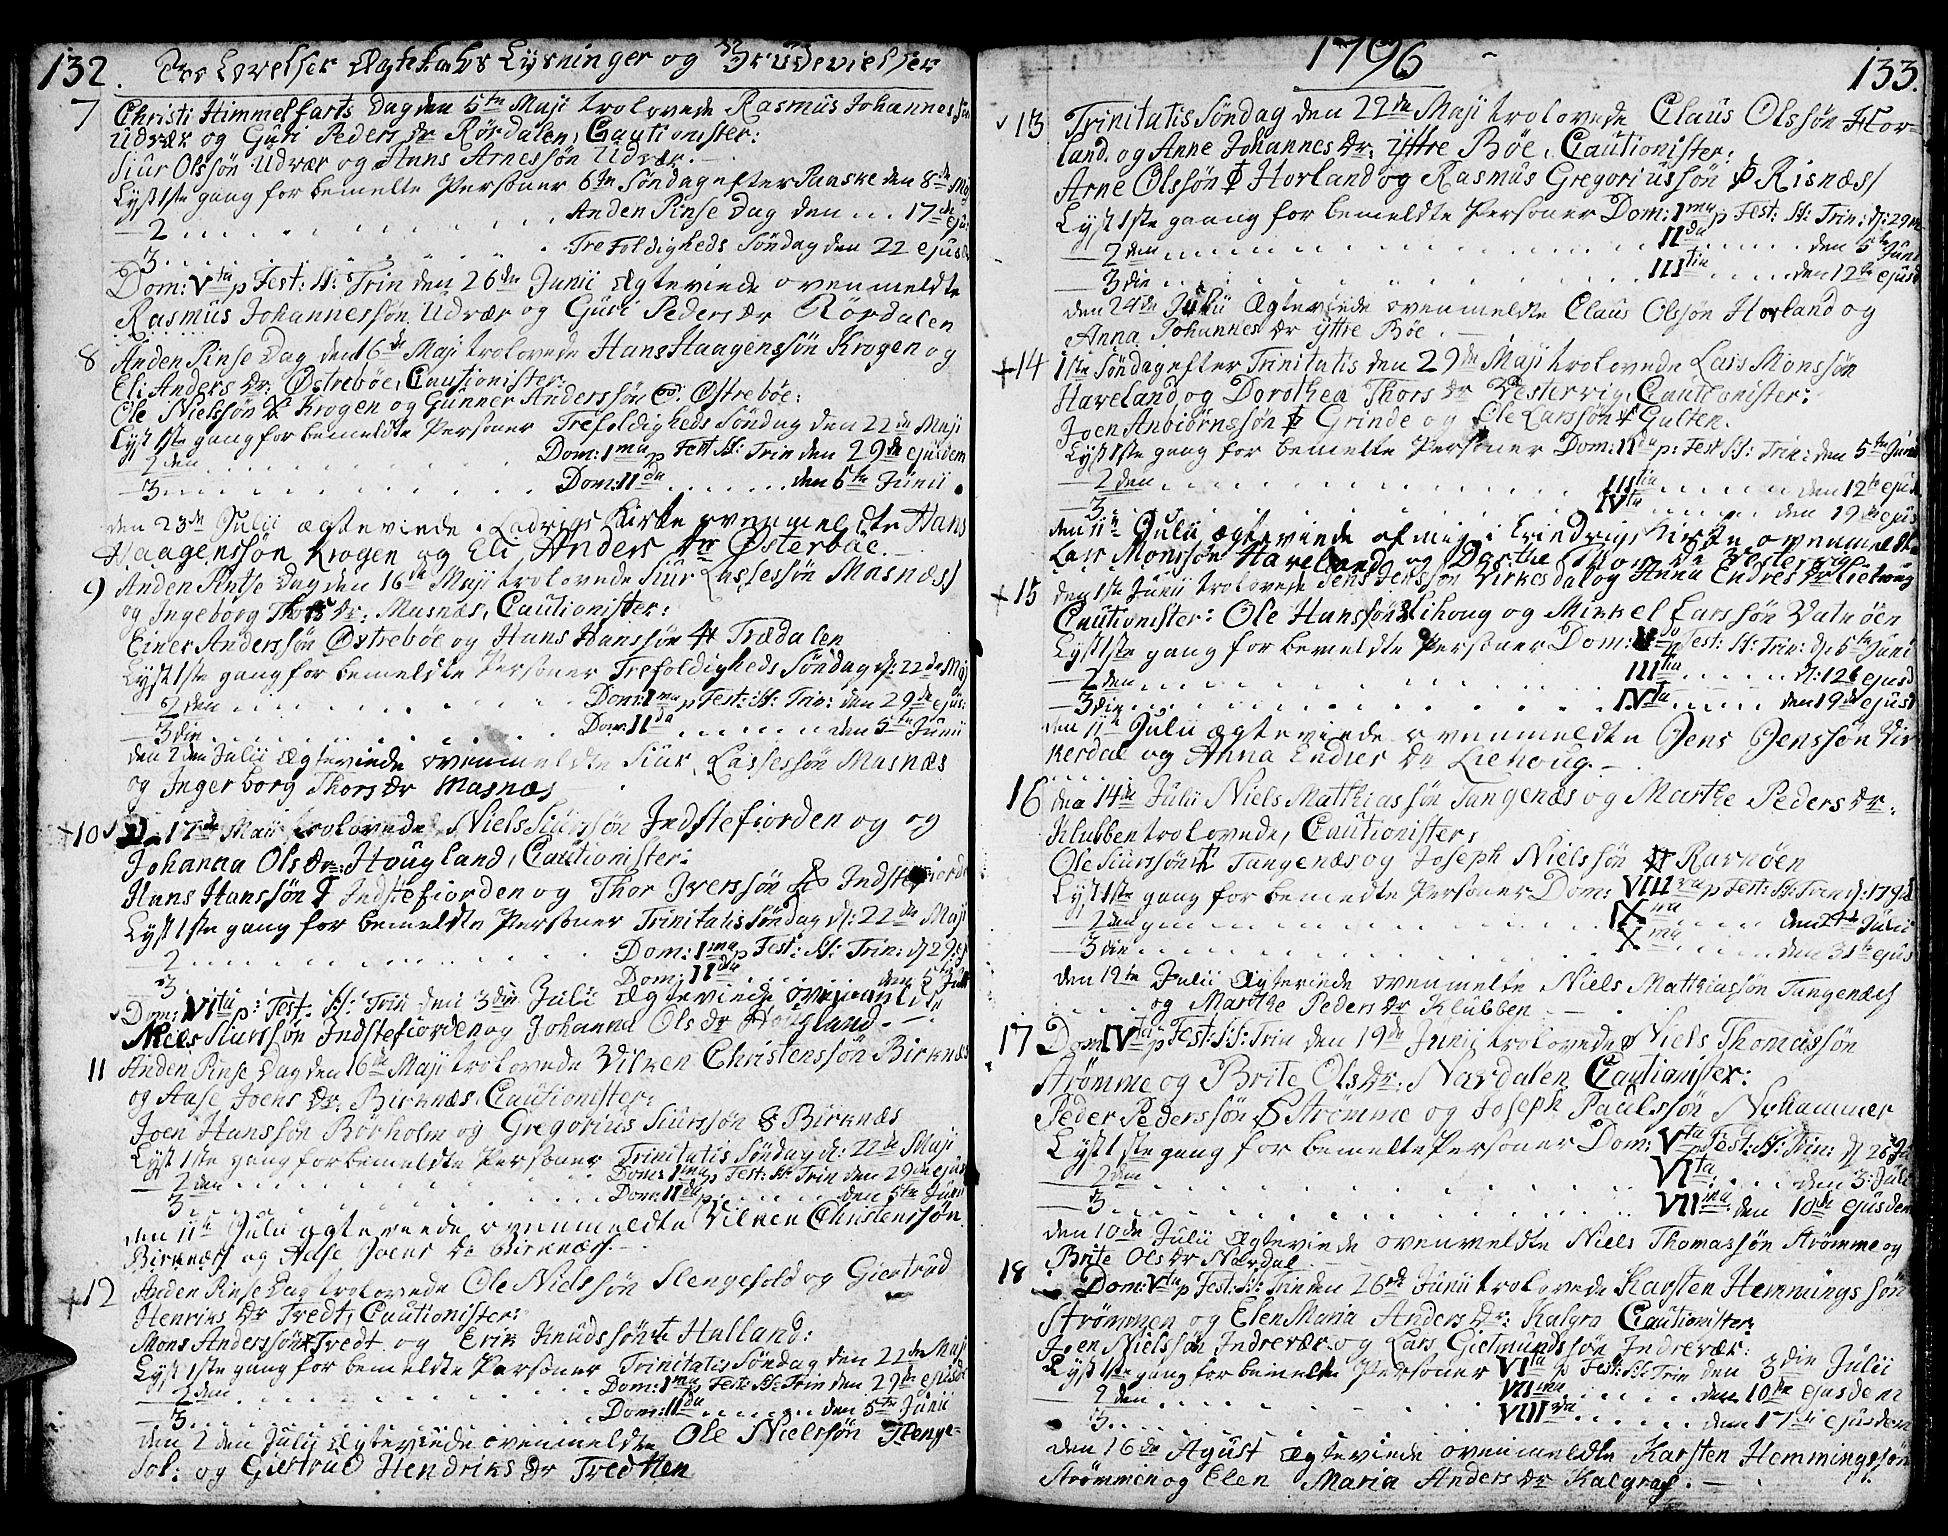 132. Trolovelser Ægteskabs Lysninger og Brudevielser
7 Christi Himmelfarts Dag den 5te Maji trolovede Rasmus Johannessøn
Udvær og Guri Peders Dr Rørdalen, Cautionister:
Siur Olssøn Udvær og Hans Arnessøn Udvær. -
Lyst 1ste gang for bemelte Personer 6te Søndag efter Paaske den 8de Maj
- 2 . . . . Anden Pinse Dag den . . . 17de eju:
- 3 . . . . Trefoldigheds Søndag den 22 ejusd
Dom: Vta p Fest: S: Trin den 26de Junii Ægteviede ovenmeldte
Rasmus Johannessøn Udvær og Guri Peders Dr Rørdalen
8 Anden Pinse Dag den 16de Maji trolovede Hans Haagenssøn Krogen og
Eli Anders Dr. Østrebøe, Cautionister:
Ole Nielssøn Krogen og Gunner Anderssøn Østrebøe:
Lyst 1ste gang for bemeldte Personer Trefoldigheds Søndag den 22de Maji
- 2 den . . . . Dom: 1ma p Fest S: Trin den 29de ejusdem
- 3 . . . . Dom: IIda . . . . den 5te Junii .
den 23de Julii ægteviede i Kirke ovenmeldte Hans
Haagenssøn Krogen og Eli Anders Dr Østerbøe. -
9 Anden Pintse Dag den 16de Maji trolovede Siur Lassessøn Masnæs
og Ingeborg Thors Dr. Masnæs, Cautionister:
Einer Anderssøn Østrebøe og Hans Hanssøn Trædalen
Lyst 1ste gang for bemeldte Personer Trefoldigheds Søndag d: 22de Maj
- 2 den . . . . Dom: 1ma p Fest: S: Trin: den 29de ejus:
- 3 die . . . . Dom: IIda . . . . den 5te Junii
den 2 den Julii Ægteviede ovenmeldte Siur Lassessøn Masnæs
og Ingerborg Thors Dr Masnæs
+10 D. 17de Maii trolovede Niels Siurssøn Indstefiorden og og
Johanna Ols Dr: Hougland, Cautionister:
Hans Hanssøn Indstefiorden og Thor Iverssøn Indstefiorde
Lyst 1ste gang for bemeldte Personer Trinitatis Søndag d: 22de Maji
- 2 . . . . Dom: 1ma p Fest: S: Trin: d 29 ej
- 3 . . . . Dom: IIda . . . . den 5te Junii
Dom: VIta p: Fest. S: Trin den 3die Julii Ægteviede ovenmeldte
Niels Siurssøn Indstefiorden og Johanna Ols Dr Hougland. -
11 Anden Pinse Dag den 16de Maji trolovede Vilken Christenssøn Birknæs
og Aase Joens Dr. Birknæs, Cautionister:
Joen Hanssøn Børholm og Gregorius Siurssøn Birknæs
Lyst 1ste gang for bemeldte Personer Trinitatis Søndag d: 22de Maji
- 2 den . . . . Dom: 1ma p Fest: S: Trin den 29de ejus
- 3 . . . . Dom: IIda p . . . . den 5te Junii
den 11te Julii ægteviede ovenmeldte Vilken Christenssøn
Birknæss og Aase Joens Dr Birknæss. -
+12 Anden Pinse Dag trolovede Ole Nielssøn Slengesold og Giertrud
Henriks Dr Tredt, Cautionister:
Mons Anderssøn Tvedt og Erik Knudssøn Hulland:
Lyst 1ste gang for bemeldte Personer Trinitatis Søndag den 22de Maji
- 2 den . . . . Dom: 1ma p Fest: S: Trin den 29de ejusde
- 3 . . . . Dom: IIda . . . . den 5te Junii
den 2 den Julii Ægteviede ovenmeldte Ole Nielssøn Slenge-
sol: og Giertrud Hendriks Dr Tredten
1796 133.
13 Trinitatis Søndag den 22de Maji trolovede Claus Olssøn Hor-
land og Anne Johannes Dr: Yttre Bøe, Cautionister:
Arne Olssøn Horland og Rasmus Gregoriussøn Risnæs
Lyst 1ste gaang for bemeldte Personer Dom: 1ma p Fest: S: Trin: d: 29 M
- 2 den . . . . IIda . . . . den 5te Junii
- 3 die . . . . IIItia . . . . den 12te ejusd
den 24de Julii Ægteviede ovenmeldte Claus Olssøn Horland og
Anna Johannes Dr Yttre Bøe. -
+14 1ste Søndag efter Trinitatis den 29de Maji trolovede Lars Monssøn
Haveland og Dorothea Thors Dr Vestervig, Cautionister:
Joen Anbiørnssøn Grinde og Ole Larssøn Gulten.
Lyst 1ste gang for bemelte Personer Dom: IIda p: Fest S: Trin: den 5te Junii
- 2 den . . . . IIItia . . . . den 12te ejusd
- 3 . . . . IVta . . . . den 19de ejus
den 11te Julii ægteviede af mig i Kirke ovenmeldte
Lars Monssøn Haveland og Dorthe Thors Dr Vestervig
+15 den 1ste Junii trolovede Jens Jenssøn Virkesdal og Anna Endres Dr Liehoug
Cautionister: Ole Hanssøn Lihoug og Mikkel Larssøn Vatnøen
Lyst 1ste gang for bemeldte Personer Dom: II p Fest: S: Trin: d: 5te Junii
- 2 den . . . . IIItia . . . . d: 12te ejusd
- 3 die . . . . IVta . . . . den 19de ejusd
den 11te Julii Ægteviede ovenmeldte Jens Jenssøn Vir
kesdal og Anna Endres Dr Liehoug. -
16 den 14de Julii Niels Mathiassøn Tangenæs og Marthe Peders Dr.
Klubben trolovede, Cautionister,
Ole Siurssøn Tangenæs og Joseph Nielssøn Ravnøen
Lyst 1ste gang for bemeldte Personer Dom: VIIIva p Fest: S: Trin d: 17 Jul
- 2 den . . . . IXna . . . . den 24de Julii
- 3 die . . . . Xma . . . . den 31te ejus
den 12te Julii Ægteviede ovenmelte Niels Mathiassøn Tangenæs
og Marthe Peders Dr Klubben. -
17 Dom: IVta p Fest: S: Trin den 19de Junii trolovede Niels Thomassøn
Strømme og Brite Ols Dr: Nærdalen Cautionister:
Peder Pederssøn Strømme og Joseph Paulssøn Nyhammer
Lyst 1ste gang for bemelte Personer Dom: Vta p Fest: S: Trin: d 26 Ju
- 2 den . . . . VIta . . . . den 3: Julii
- 3 . . . . VIIma den 10de ejusdem
den 10de Julii Ægteviede ovenmeldte Niels Thomassøn Strømme og
Brite Ols Dr Nærdal
18 Dom: Vta p Fest: S: Trin den 26de Junii trolovede Karsten Hemmingssøn
Strømmen og Elen Maria Anders Dr: Kalgra Cautionister:
Joen Nielssøn Indrevær og Lars Gietmundssøn Indrevær:
Lyst 1ste gang for bemelte Personer VIta p Fest: S: Trin den 3die Julii
- 2 den . . . . VIIma . . . . den 10de ejusdem
- 3 . . . . VIIIva . . . . den 17de ejusdem
den 16de Agust Ægteviede ovenmeldte Karsten Hemmingssøn
Strømmen og Elen Maria Anders Dr Kalgraf. -